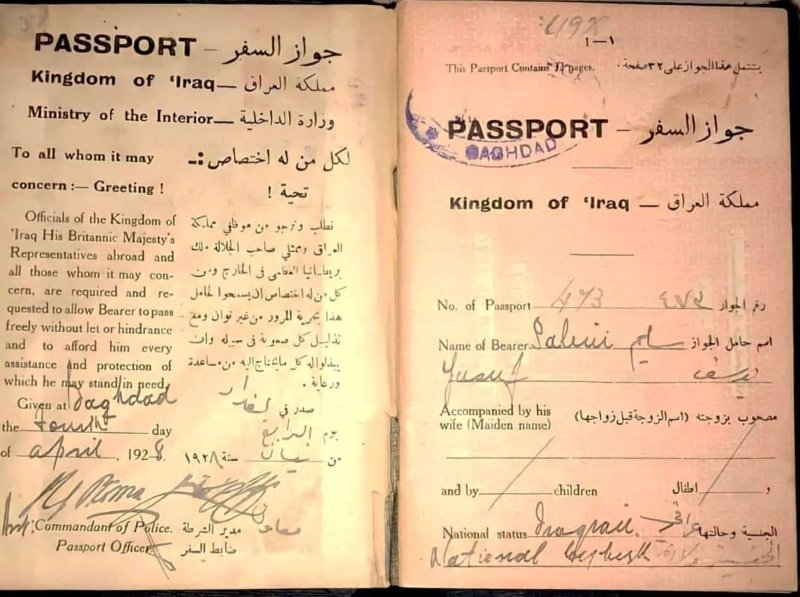 PASSPORT – جواز السفر
Kingdom of ‘Iraq — مملكة العراق
Ministry of the Interior — وزارة الداخلية
To all whom it may
concern :— Greeting !
لكل من له اختصاص :-
تحية !
Officials of the Kingdom of
‘Iraq His Britannic Majesty's
Representatives abroad and
all those whom it may con-
cern, are required and re-
quested to allow Bearer to pass
freely without let or hindrance
and to afford him every
assistance and protection of
which he may stand in need.
نطلب ونرجو من موظفي مملكة
العراق وممثلي صاحب الجلالة ملك
بريطانيا العظمى في الخارج ومن
كل من له اختصاص ان يسمحوا لحامل
هذا بحرية المرور من غير توان ومع
تذليل كل صعوبة في سبيله وان
يبذلوا له كل ما يحتاج اليه من مساعدة
ورعاية .
Given at Baghdad صدر في بغداد
the fourth day يوم الرابع
of april , 1928 من نيسان سنة ١٩٢٨
Commandant of Police. مدير الشرطة
Passport Officer. ضابط السفر
معاون
١—١
This Passport Contains 32 pages. يشتمل هذا الجواز على ٣٢ صفحة .
PASSPORT – جواز السفر
BAGHDAD
Kingdom of ‘Iraq — مملكة العراق
No. of Passport 473 ٤٧٣ رقم الجواز
Name of Bearer Salim سليم اسم حامل الجواز
Yusuf يوسف
Accompanied by his
wife (Maiden name)
مصحوب بزوجته (اسم الزوجة قبل زواجها)
and by / children / اطفال و
National status Iraqian عراقي الجنسية وحالتها
National